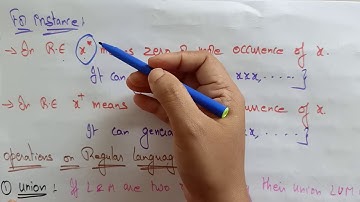 For instance:
→ In R.E x* means zero or more occurence of x.
It can xxx, .....}
→ In R.E x⁺ means urrence of x.
It can genera x, .....}
operations on Regular languag
① union : If L & M are two their union L U M